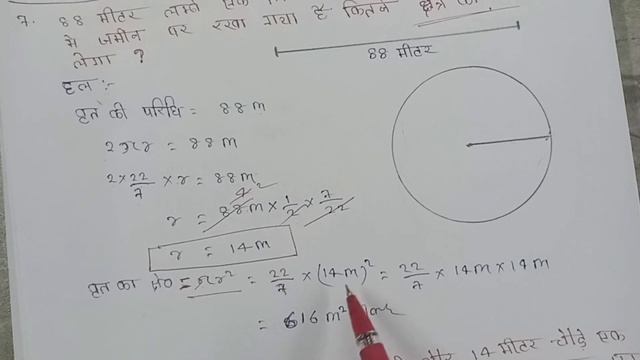 7. 88 मीटर लम्बे एक
में जमीन पर रखा गया है कितने क्षेत्र को
लेगा ?
88 मीटर
हल :-
वृत की परिधि = 88m
2πr = 88m
2 × 22/7 × r = 88m
r = 88m × 1/2 × 7/22
r = 14m
वृत का क्षे0 = πr² = 22/7 × (14m)² = 22/7 × 14m × 14m
= 616 m²
और 14 मीटर चौड़े एक